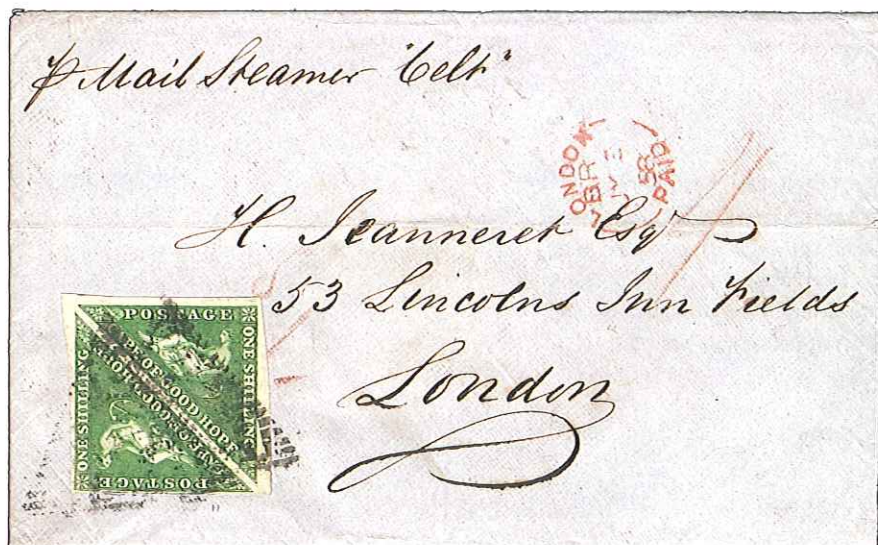 p Mail Steamer "Celt"
LONDON
BR
58
PAID
H. Jeanneret Esqr
53 Lincolns Inn Fields
London
POSTAGE
ONE SHILLING
CAPE OF GOOD HOPE
CAPE OF GOOD HOPE
ONE SHILLING
POSTAGE